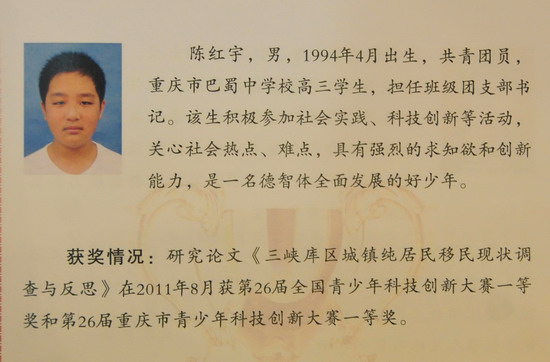 陈红宇，男，1994年4月出生，共青团员，
重庆市巴蜀中学校高三学生，担任班级团支部书
记。该生积极参加社会实践、科技创新等活动，
关心社会热点、难点，具有强烈的求知欲和创新
能力，是一名德智体全面发展的好少年。
获奖情况：研究论文《三峡库区城镇纯居民移民现状调
查与反思》在2011年8月获第26届全国青少年科技创新大赛一等
奖和第26届重庆市青少年科技创新大赛一等奖。